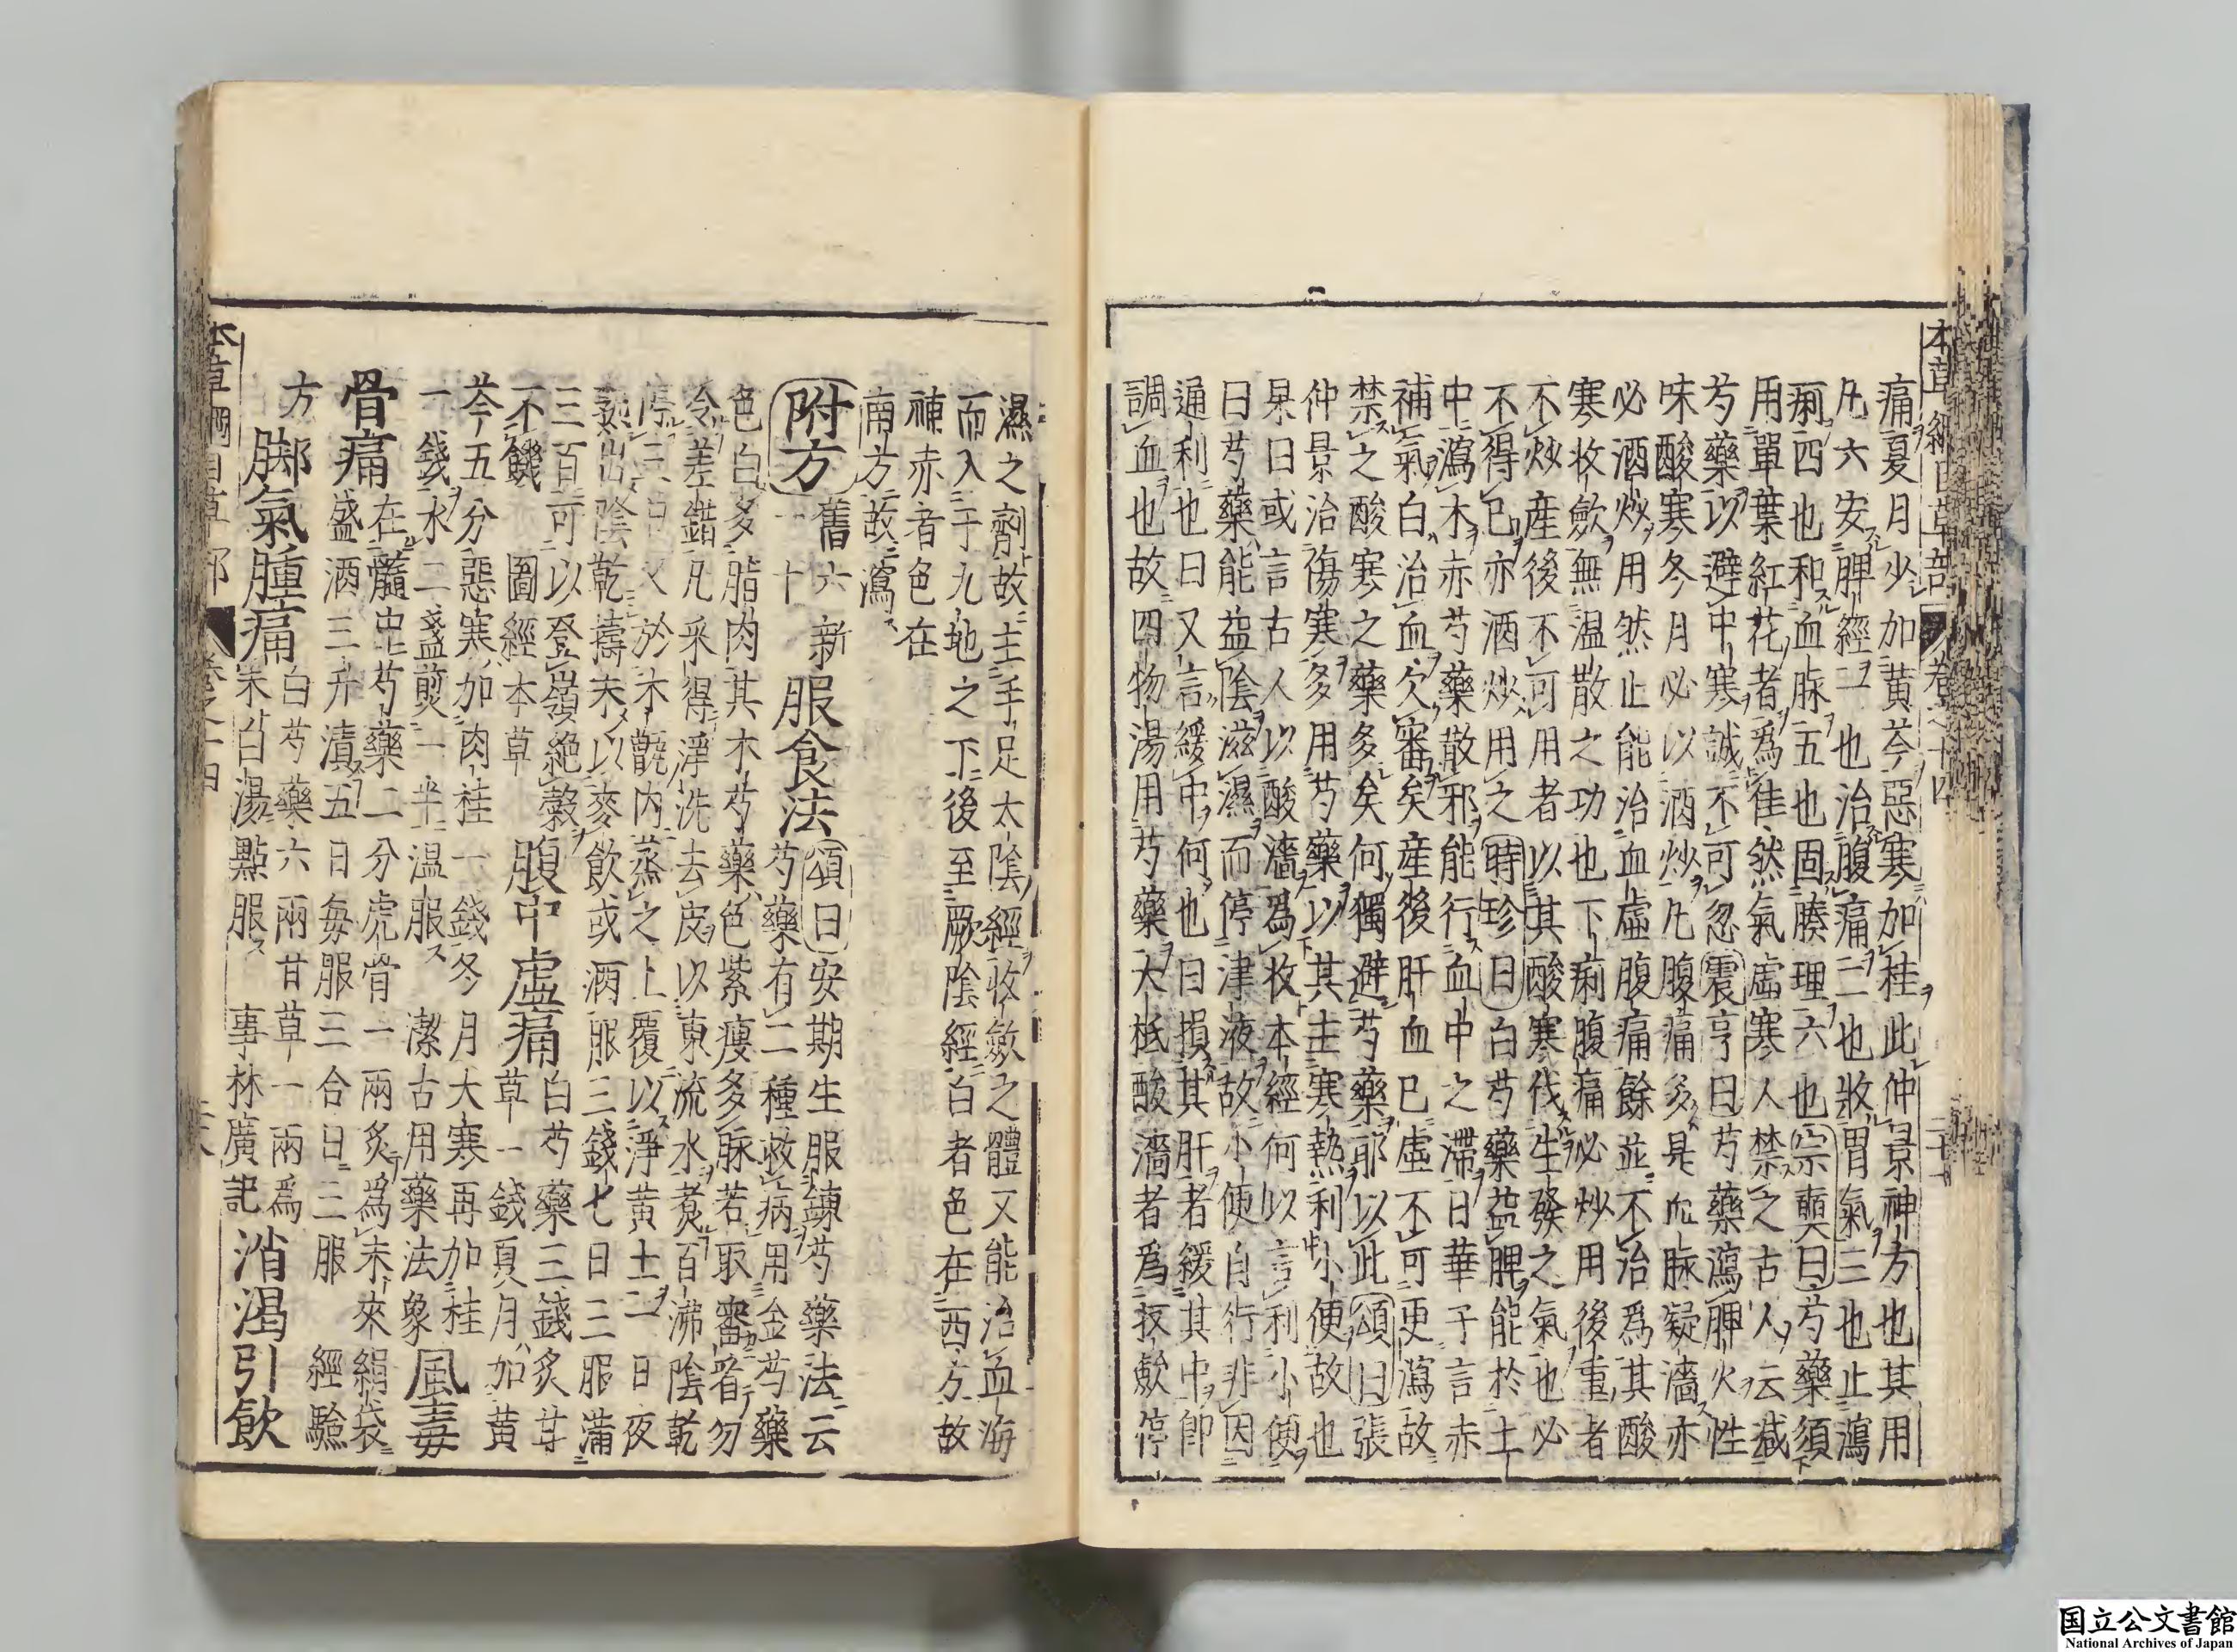 本草綱目草部 卷之十四 二十一
痛夏月少加黃芩惡寒加桂此仲景神方也其用
凡六安脾經一也治腹痛二也收胃氣三也止瀉
痢四也和血脉五也固腠理六也宗奭曰芍藥須
用單葉紅花者爲佳然氣虛寒人禁之古人云減
芍藥以避中寒誠不可忽震亨曰芍藥瀉脾火性
味酸寒冬月必以酒炒凡腹痛多是血脉凝濇亦
必酒炒用然止能治血虛腹痛餘並不治爲其酸
寒收斂無温散之功也下痢腹痛必炒用後重者
不炒產後不可用者以其酸寒伐生發之氣也必
不得已亦酒炒用之時珍曰白芍藥益脾能於土
中瀉木亦芍藥散邪能行血中之滯日華子言赤
補氣白治血欠審矣產後肝血已虛不可更瀉故
禁之酸寒之藥多矣何獨避芍藥耶以此頌曰張
仲景治傷寒多用芍藥以其主寒熱利小便故也
杲曰或言古人以酸濇爲收本經何以言利小便
曰芍藥能益陰滋濕而停津液故小便自行非因
通利也曰又言緩中何也曰損其肝者緩其中即
調血也故四物湯用芍藥大柢酸濇者爲収斂停
濕之劑故主手足太陰經收斂之體又能治血海
而入于九地之下後至厥陰經白者色在西方故
補赤者色在
南方故瀉
附方 舊六新一十 服食法 頌曰安期生服鍊芍藥法云
芍藥有二種救病用金芍藥
色白多脂肉其木芍藥色紫瘦多脉若取審看勿
令差錯凡采得淨洗去皮以東流水煮百沸陰乾
停三日又於木甑內蒸之上覆以淨黃土一日夜
熟出陰乾擣末以麥飲或酒服三錢七日三服滿
三百可以登嶺絕穀
不饑 圖經本草 腹中虛痛 白芍藥三錢炙甘草一錢夏月加黃
芩五分惡寒加肉桂一錢冬月大寒再加桂
一錢水二盞煎一半温服 潔古用藥法象 風毒
骨痛 在髓中芍藥二分虎骨一兩炙爲末夾絹袋
盛酒三升漬五日每服三合日三服 經驗
方 脚氣腫痛 白芍藥六兩甘草一兩爲
末白湯點服 事林廣記 消渴引飲
本草綱目草部 卷之十四
国立公文書館
National Archives of Japan